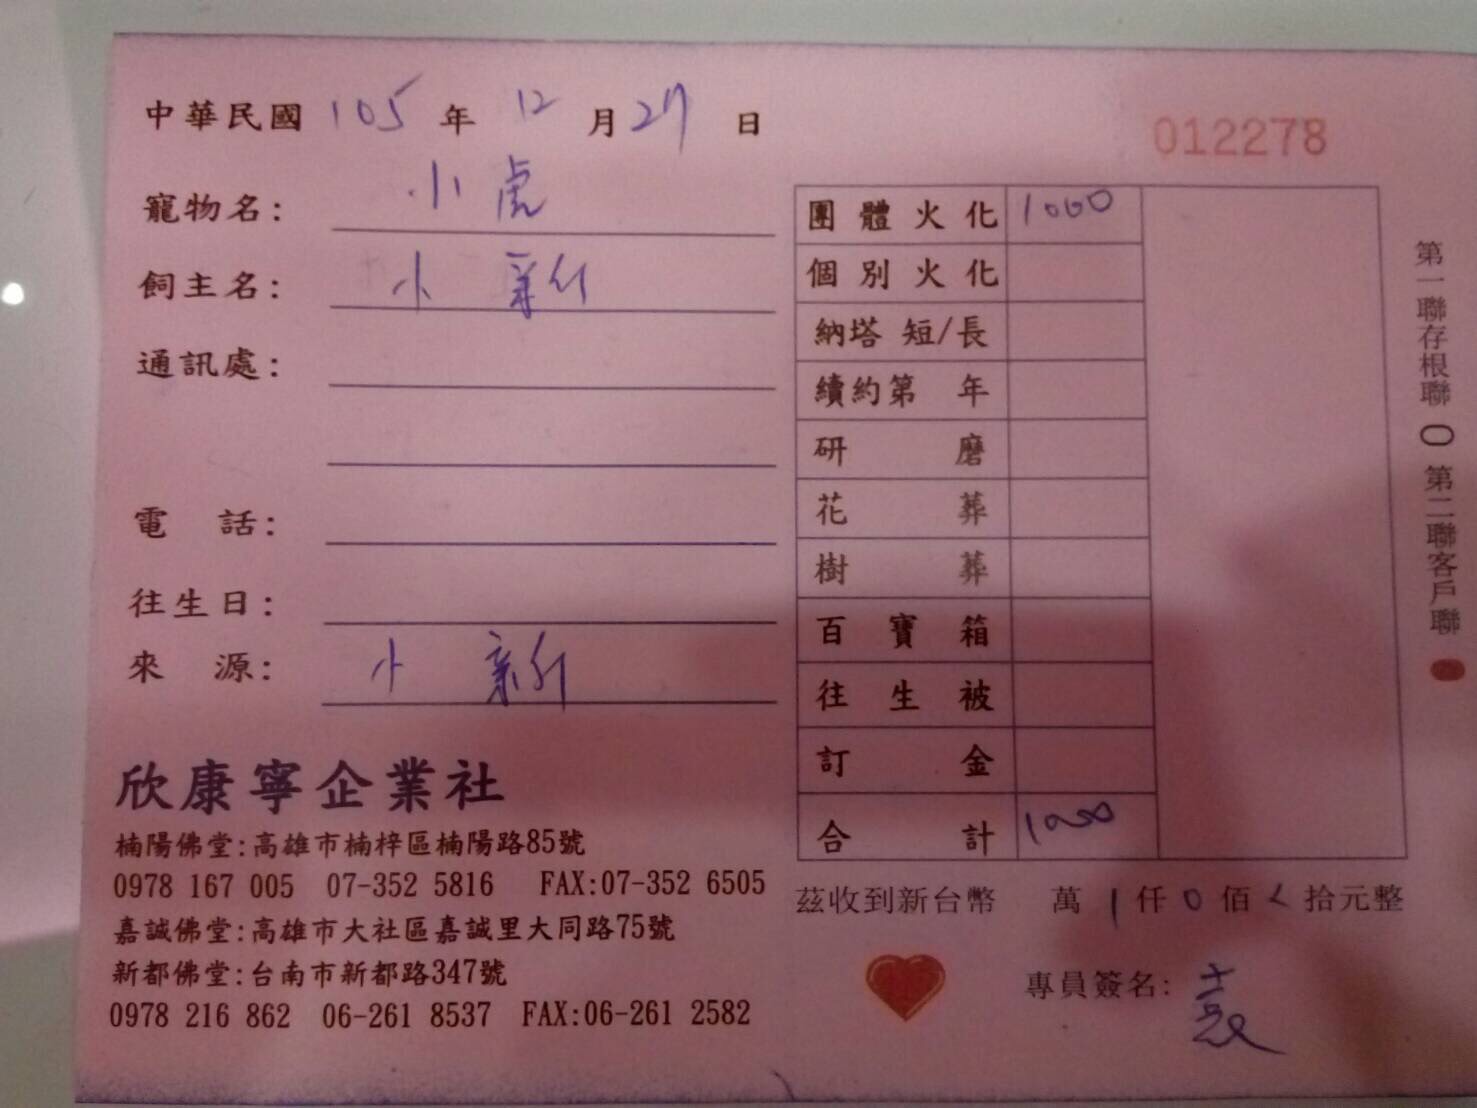 中華民國 105 年 12 月 27 日
012278
寵物名: 小虎
飼主名: 小新
通訊處:
電話:
往生日:
來源: 小新
團體火化 1000
個別火化
納塔 短/長
續約第 年
研磨
花葬
樹葬
百寶箱
往生被
訂金
合計 1000
茲收到新台幣 萬 1 仟 0 佰 拾元整
專員簽名:
欣康寧企業社
楠陽佛堂:高雄市楠梓區楠陽路85號
0978 167 005 07-352 5816 FAX:07-352 6505
嘉誠佛堂:高雄市大社區嘉誠里大同路75號
新都佛堂:台南市新都路347號
0978 216 862 06-261 8537 FAX:06-261 2582
第一聯存根聯 〇 第二聯客戶聯